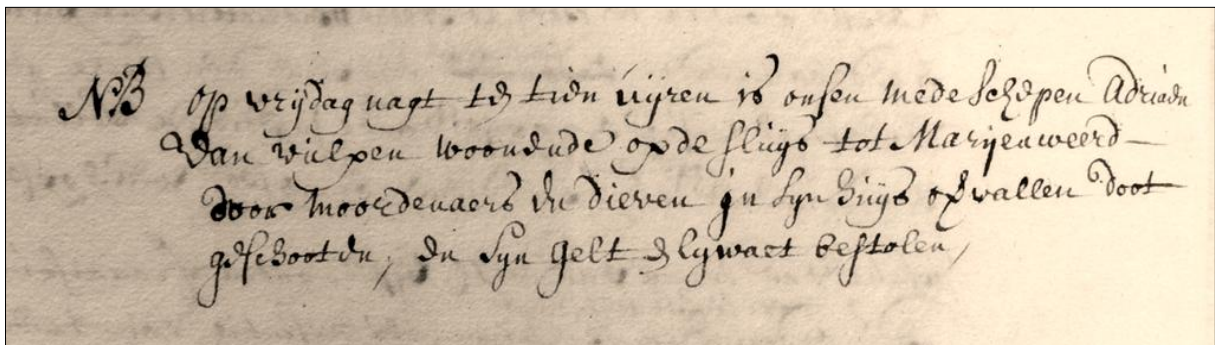 NB op vrijdag nagt te tien uijren is onsen mede schepen Adriaen
van vulpen woonende op de sluijs tot Marijenweerd
door moordenaers en dieven in syn huijs opvallen doot
geschooten, en syn gelt & lywaet bestolen,